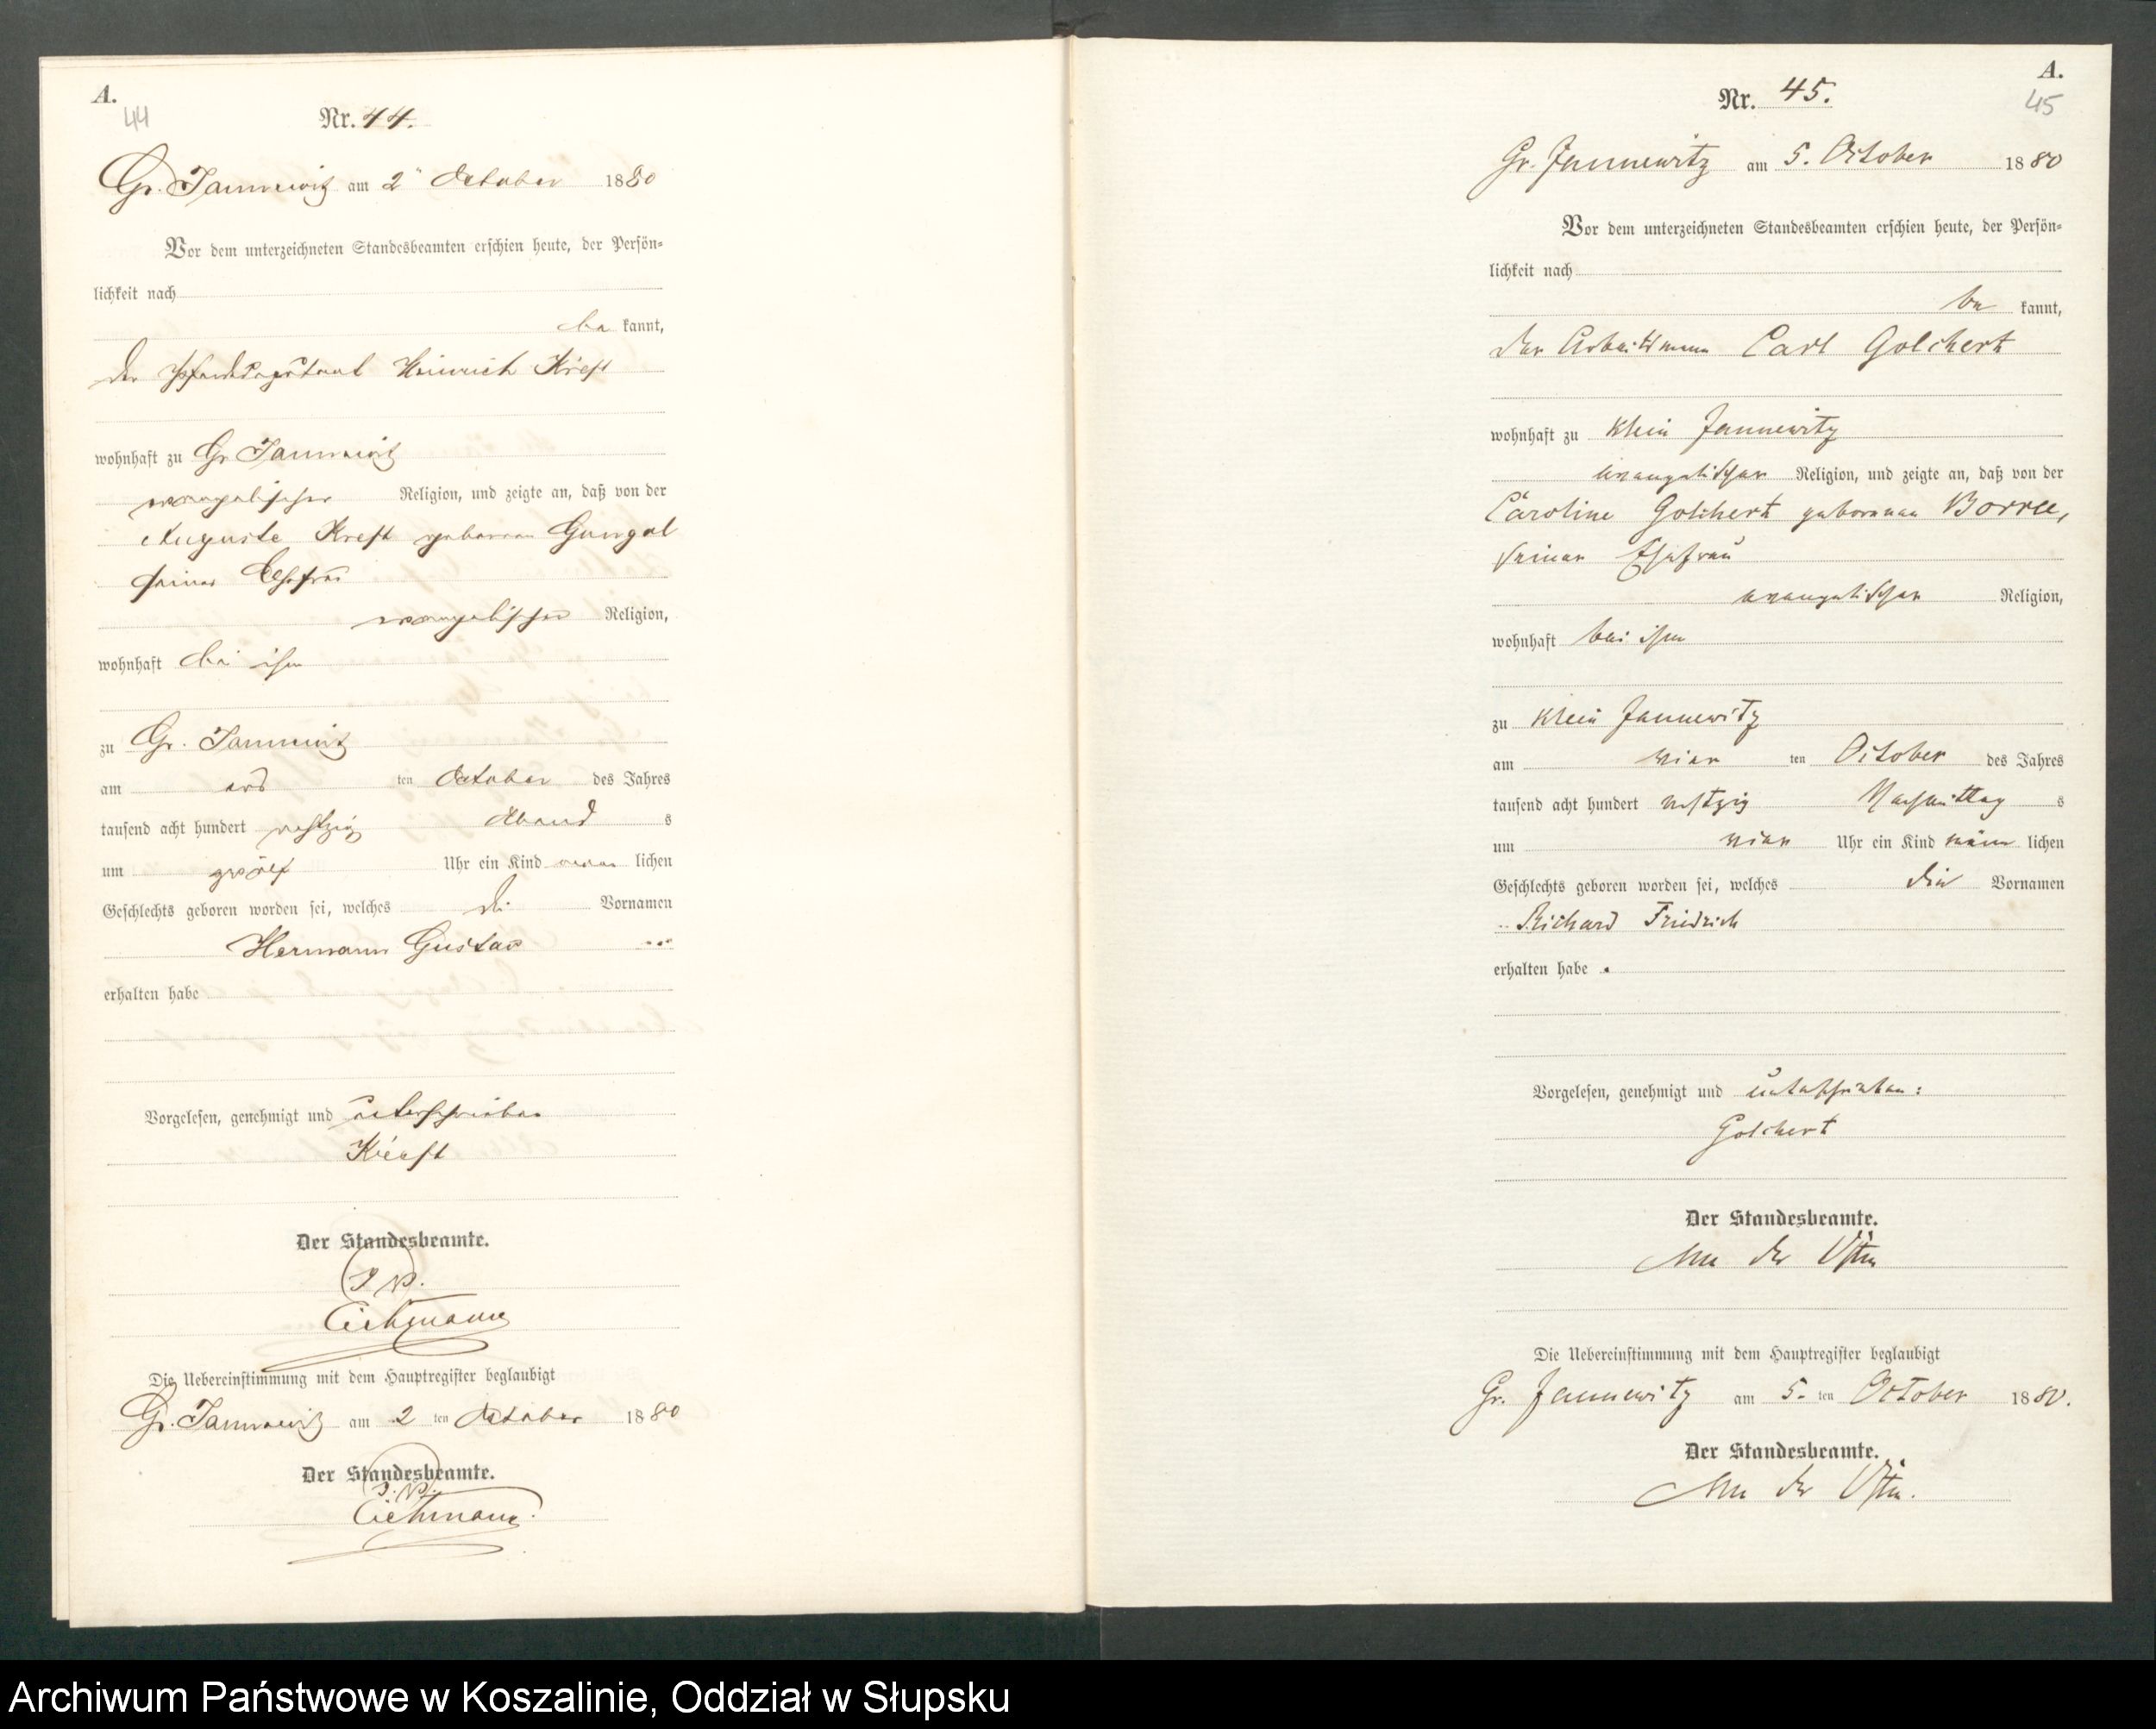 A.
44
Nr. 44.
Gr. Jannewitz am 2 October 1880
Vor dem unterzeichneten Standesbeamten erschien heute, der Persön-
lichkeit nach
be kannt,
der Heinrich Kreft
wohnhaft zu Gr Jannewitz
evangelischer Religion, und zeigte an, daß von der
Auguste Kreft geborene
seiner Ehefrau
evangelischer Religion,
wohnhaft bei ihm
zu Gr. Jannewitz
am ten October des Jahres
tausend acht hundert achtzig Abend s
um zwölf Uhr ein Kind lichen
Geschlechts geboren worden sei, welches die Vornamen
Hermann Gustav
erhalten habe
Vorgelesen, genehmigt und unterschrieben
Kreft
Der Standesbeamte.
Die Uebereinstimmung mit dem Hauptregister beglaubigt
Gr. Jannewitz am 2 ten October 1880
Der Standesbeamte.
A.
45
Nr. 45.
Gr. Jannewitz am 5. October 1880
Vor dem unterzeichneten Standesbeamten erschien heute, der Persön-
lichkeit nach
be kannt,
der Arbeitsmann Carl Golchert
wohnhaft zu Klein Jannewitz
evangelischer Religion, und zeigte an, daß von der
Caroline Golchert geborenen
seiner Ehefrau
evangelischer Religion,
wohnhaft bei ihm
zu Klein Jannewitz
am vier ten October des Jahres
tausend acht hundert achtzig Nachmittag s
um vier Uhr ein Kind männ lichen
Geschlechts geboren worden sei, welches die Vornamen
Richard Friedrich
erhalten habe .
Vorgelesen, genehmigt und unterschrieben:
Golchert
Der Standesbeamte.
von der Osten
Die Uebereinstimmung mit dem Hauptregister beglaubigt
Gr. Jannewitz am 5. ten October 1880.
Der Standesbeamte.
von der Osten.
Archiwum Państwowe w Koszalinie, Oddział w Słupsku